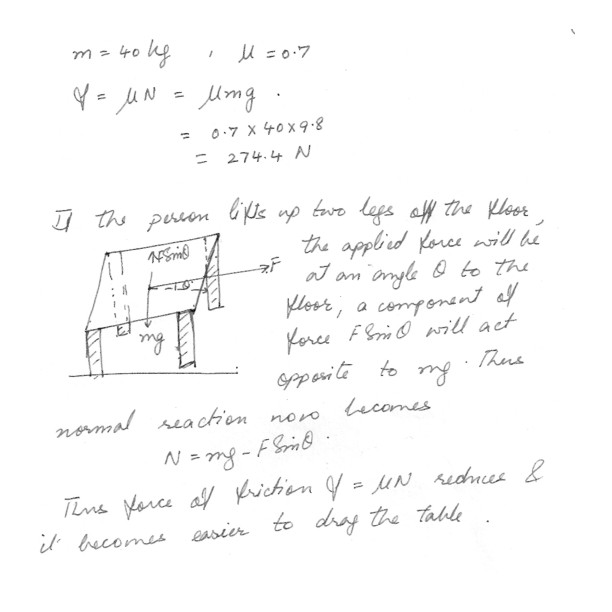 m = 40 kg , μ = 0.7
f = μN = μmg .
= 0.7 x 40 x 9.8
= 274.4 N
If the person lifts up two legs off the floor,
the applied force will be
at an angle θ to the
floor, a component of
force F Sinθ will act
opposite to mg. Thus
F Sinθ
F
θ
mg
normal reaction now becomes
N = mg - F Sinθ .
Thus force of friction f = μN reduces &
it becomes easier to drag the table .